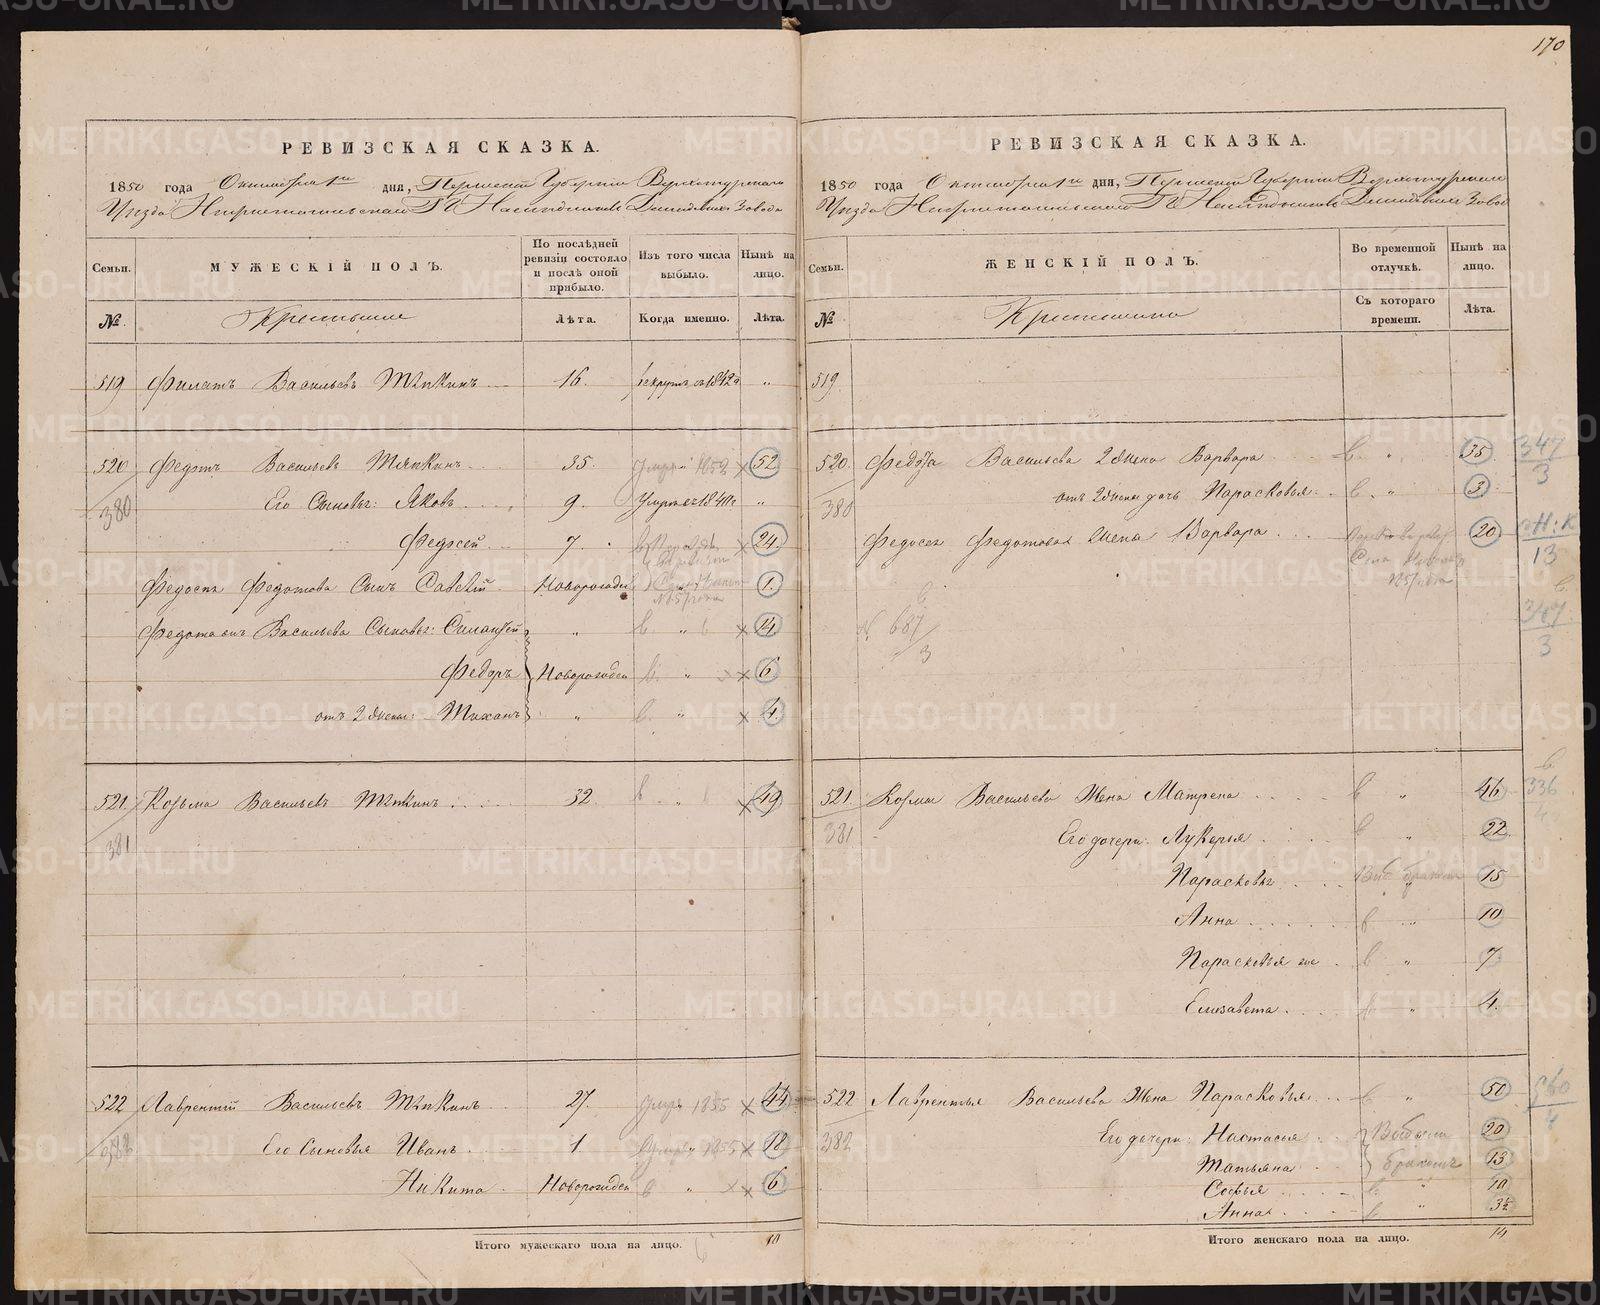 170
РЕВИЗСКАЯ СКАЗКА.
1850 года Октября 1го дня, Пермской Губернии Верхотурскаго
Уезда Нижнетагильскаго Гг. Наследников Демидовых Завода
Семьи.
МУЖЕСКІЙ ПОЛЪ.
По послѣдней ревизіи состояло и послѣ оной прибыло.
Изъ того числа выбыло.
Нынѣ на лицо.
№
Крестьяне
Лѣта.
Когда именно.
Лѣта.
519 Филатъ Васильевъ Тяпкинъ 16. рекрутъ съ 1842 г „
520 Федотъ Васильевъ Тяпкинъ 35. 1852 52
380 Его Сыновья: Яковъ 9. Умеръ въ „
Федосей 7. 24
Федосея Федотова Сынъ Савелій Новорожден 1.
Федота Васильева Сыновья: „ „ 14
Федоръ Новорожден „ 6
отъ 2 жены: Тихонъ „ „ 4
521 Козьма Васильевъ Тяпкинъ 32. „ 49
381
522 Лаврентій Васильевъ Тяпкинъ 27. 1855 44
382 Его Сыновья Иванъ 1. 1855 18
Никита Новорожден „ 6
Итого мужескаго пола на лицо. 10
РЕВИЗСКАЯ СКАЗКА.
1850 года Октября 1го дня, Пермской Губернии Верхотурскаго
Уезда Нижнетагильскаго Гг. Наследников Демидовых Завода
Семьи.
ЖЕНСКІЙ ПОЛЪ.
Во временной отлучкѣ.
Нынѣ на лицо.
№
Съ котораго времени.
Лѣта.
519.
520. Федота Васильева 2 жена Варвара „ 35 347/3
380 отъ 2 жены дочь Парасковья „ 3
Федосея Федотова жена Варвара 20 13
№ 687/3
347/3
521 Козмы Васильева Жена Матрена „ 46 336
381 Его дочери: Лукерья „ 22
Парасковья 15
Анна „ 10
Парасковья „ 7
Елизавета „ 4
522 Лаврентья Васильева Жена Парасковья „ 50
382 Его дочери: Настасья Выбыли 20
Татьяна браком 13
Софья „ 10
Анна „ 3½
Итого женскаго пола на лицо. 14
METRIKI.GASO-URAL.RU